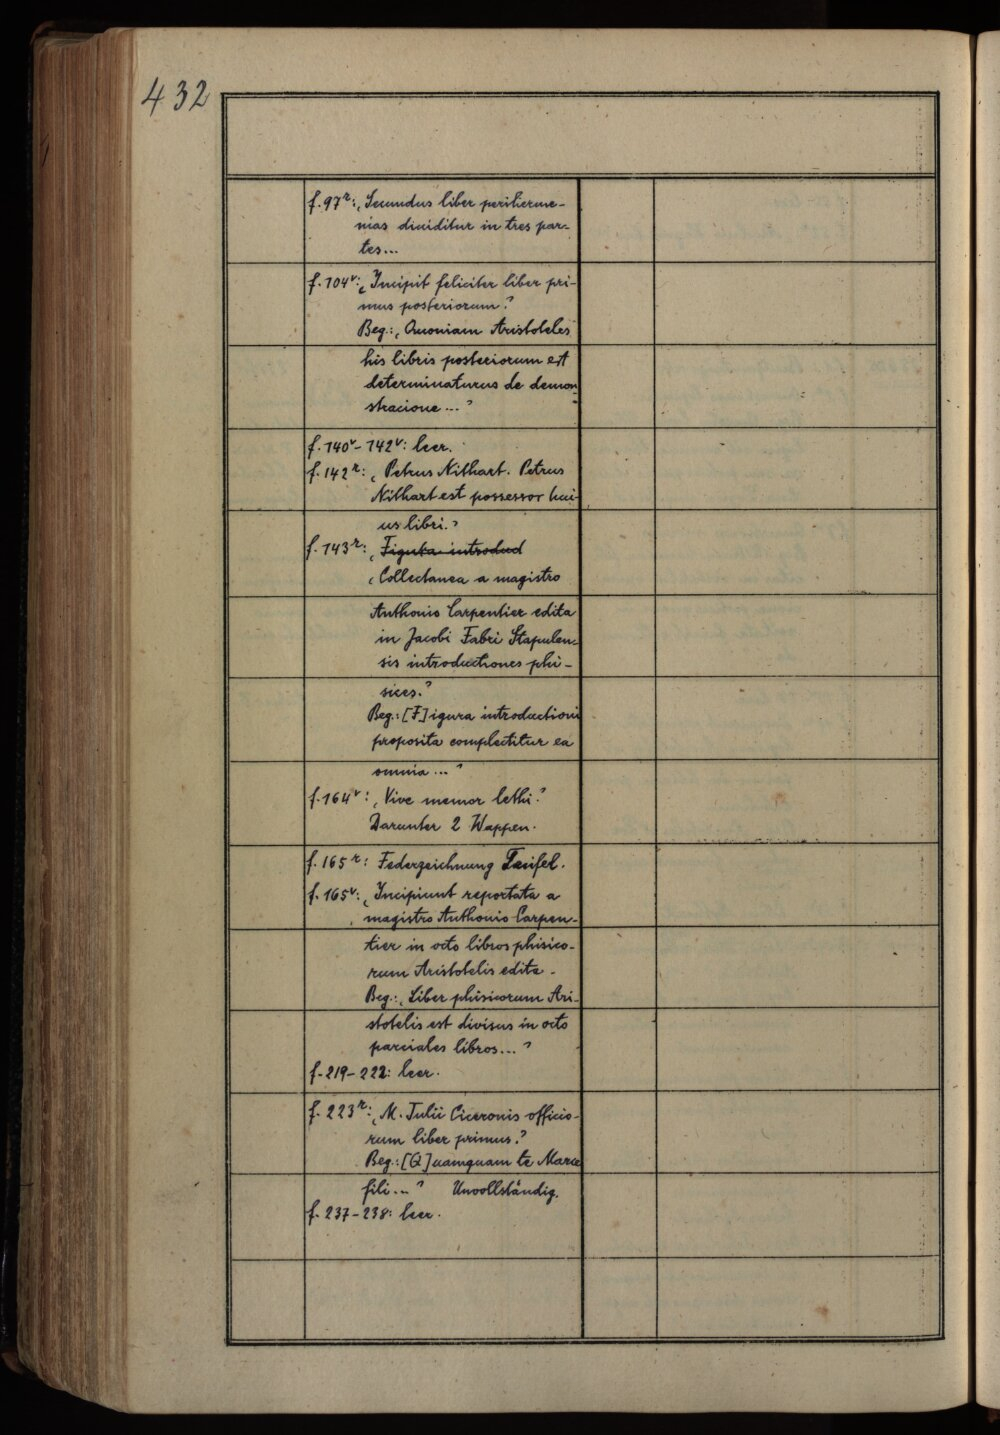 432
f. 97r: ‚Secundus liber periherme-
nias diuiditur in tres par-
tes...
f. 104v: ‚Incipit feliciter liber pri-
mus posteriorum.‘
Beg.: ‚Quoniam Aristoteles
his libris posteriorum est
determinaturus de demon-
stracione...‘
f. 140v - 142v: leer.
f. 142r: ‚Petrus Nithart. Petrus
Nithart est possessor hui-
us libri.‘
f. 143r: ‚Figuka introdud
‚Collectanea a magistro
Anthonio Carpentier edita
in Jacobi Fabri Stapulen-
sis introductiones phi-
sices.‘
Beg.: [F]igura introductioni
proposita complectitur ea
omnia...‘
f. 164v: ‚Vive memor lethi.‘
Darunter 2 Wappen.
f. 165r: Federzeichnung Teufel.
f. 165v: ‚Incipiunt reportata a
magistro Anthonio Carpen-
tier in octo libros phisico-
rum Aristotelis edita.
Beg.: ‚Liber phisicorum Ari-
stotelis est divisus in octo
parciales libros...‘
f. 219-222: leer.
f. 223r: ‚M. Tulii Ciceronis officio-
rum liber primus.‘
Beg.: [Q]uamquam te Marce
fili...‘ Unvollständig.
f. 237-238: leer.